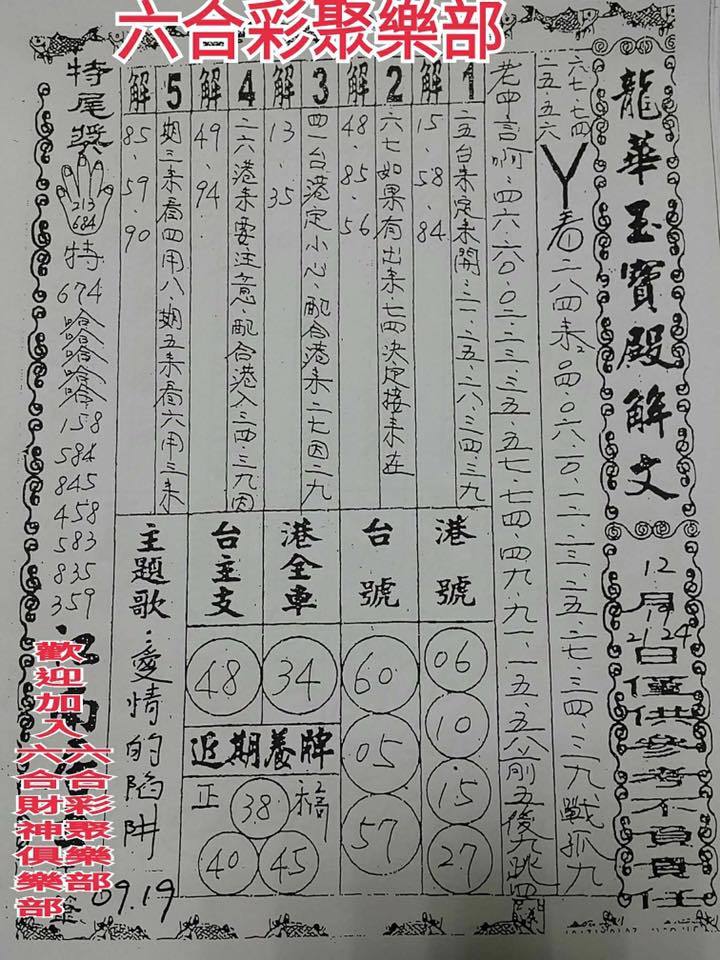 六合彩聚樂部
龍華玉寶殿解文
12月
21.24
日僅供參考不負責任
六七.七四
二五.五六
Y看二八四來
老四言啊.四六.六０.０二.二三.三五.五七.七四.四九.九一.一五.五八
前五後九跳四
1
二五台來定來開.二一.二五.二八.三四.三九
解
15.58.84
2
六七如果有出來.七四決定接來在
解
48.85.56
3
四一台港定小心.配合港來二七因二九
解
13.35
4
二六港來要注意.配合港入三四.三九因
解
49.94
5
期三來看四用八.期五來看六用三來
解
85.59.90
港號
06
10
15
27
台號
60
05
57
港全車
34
台主支
48
近期養牌
正 38 福
40 45
主題歌:愛情的陷阱
特尾獎
213
684
特
674
哈哈哈哈
158
584
845
458
583
835
359
09.19
歡迎加入六合彩聚樂部
六合財神俱樂部